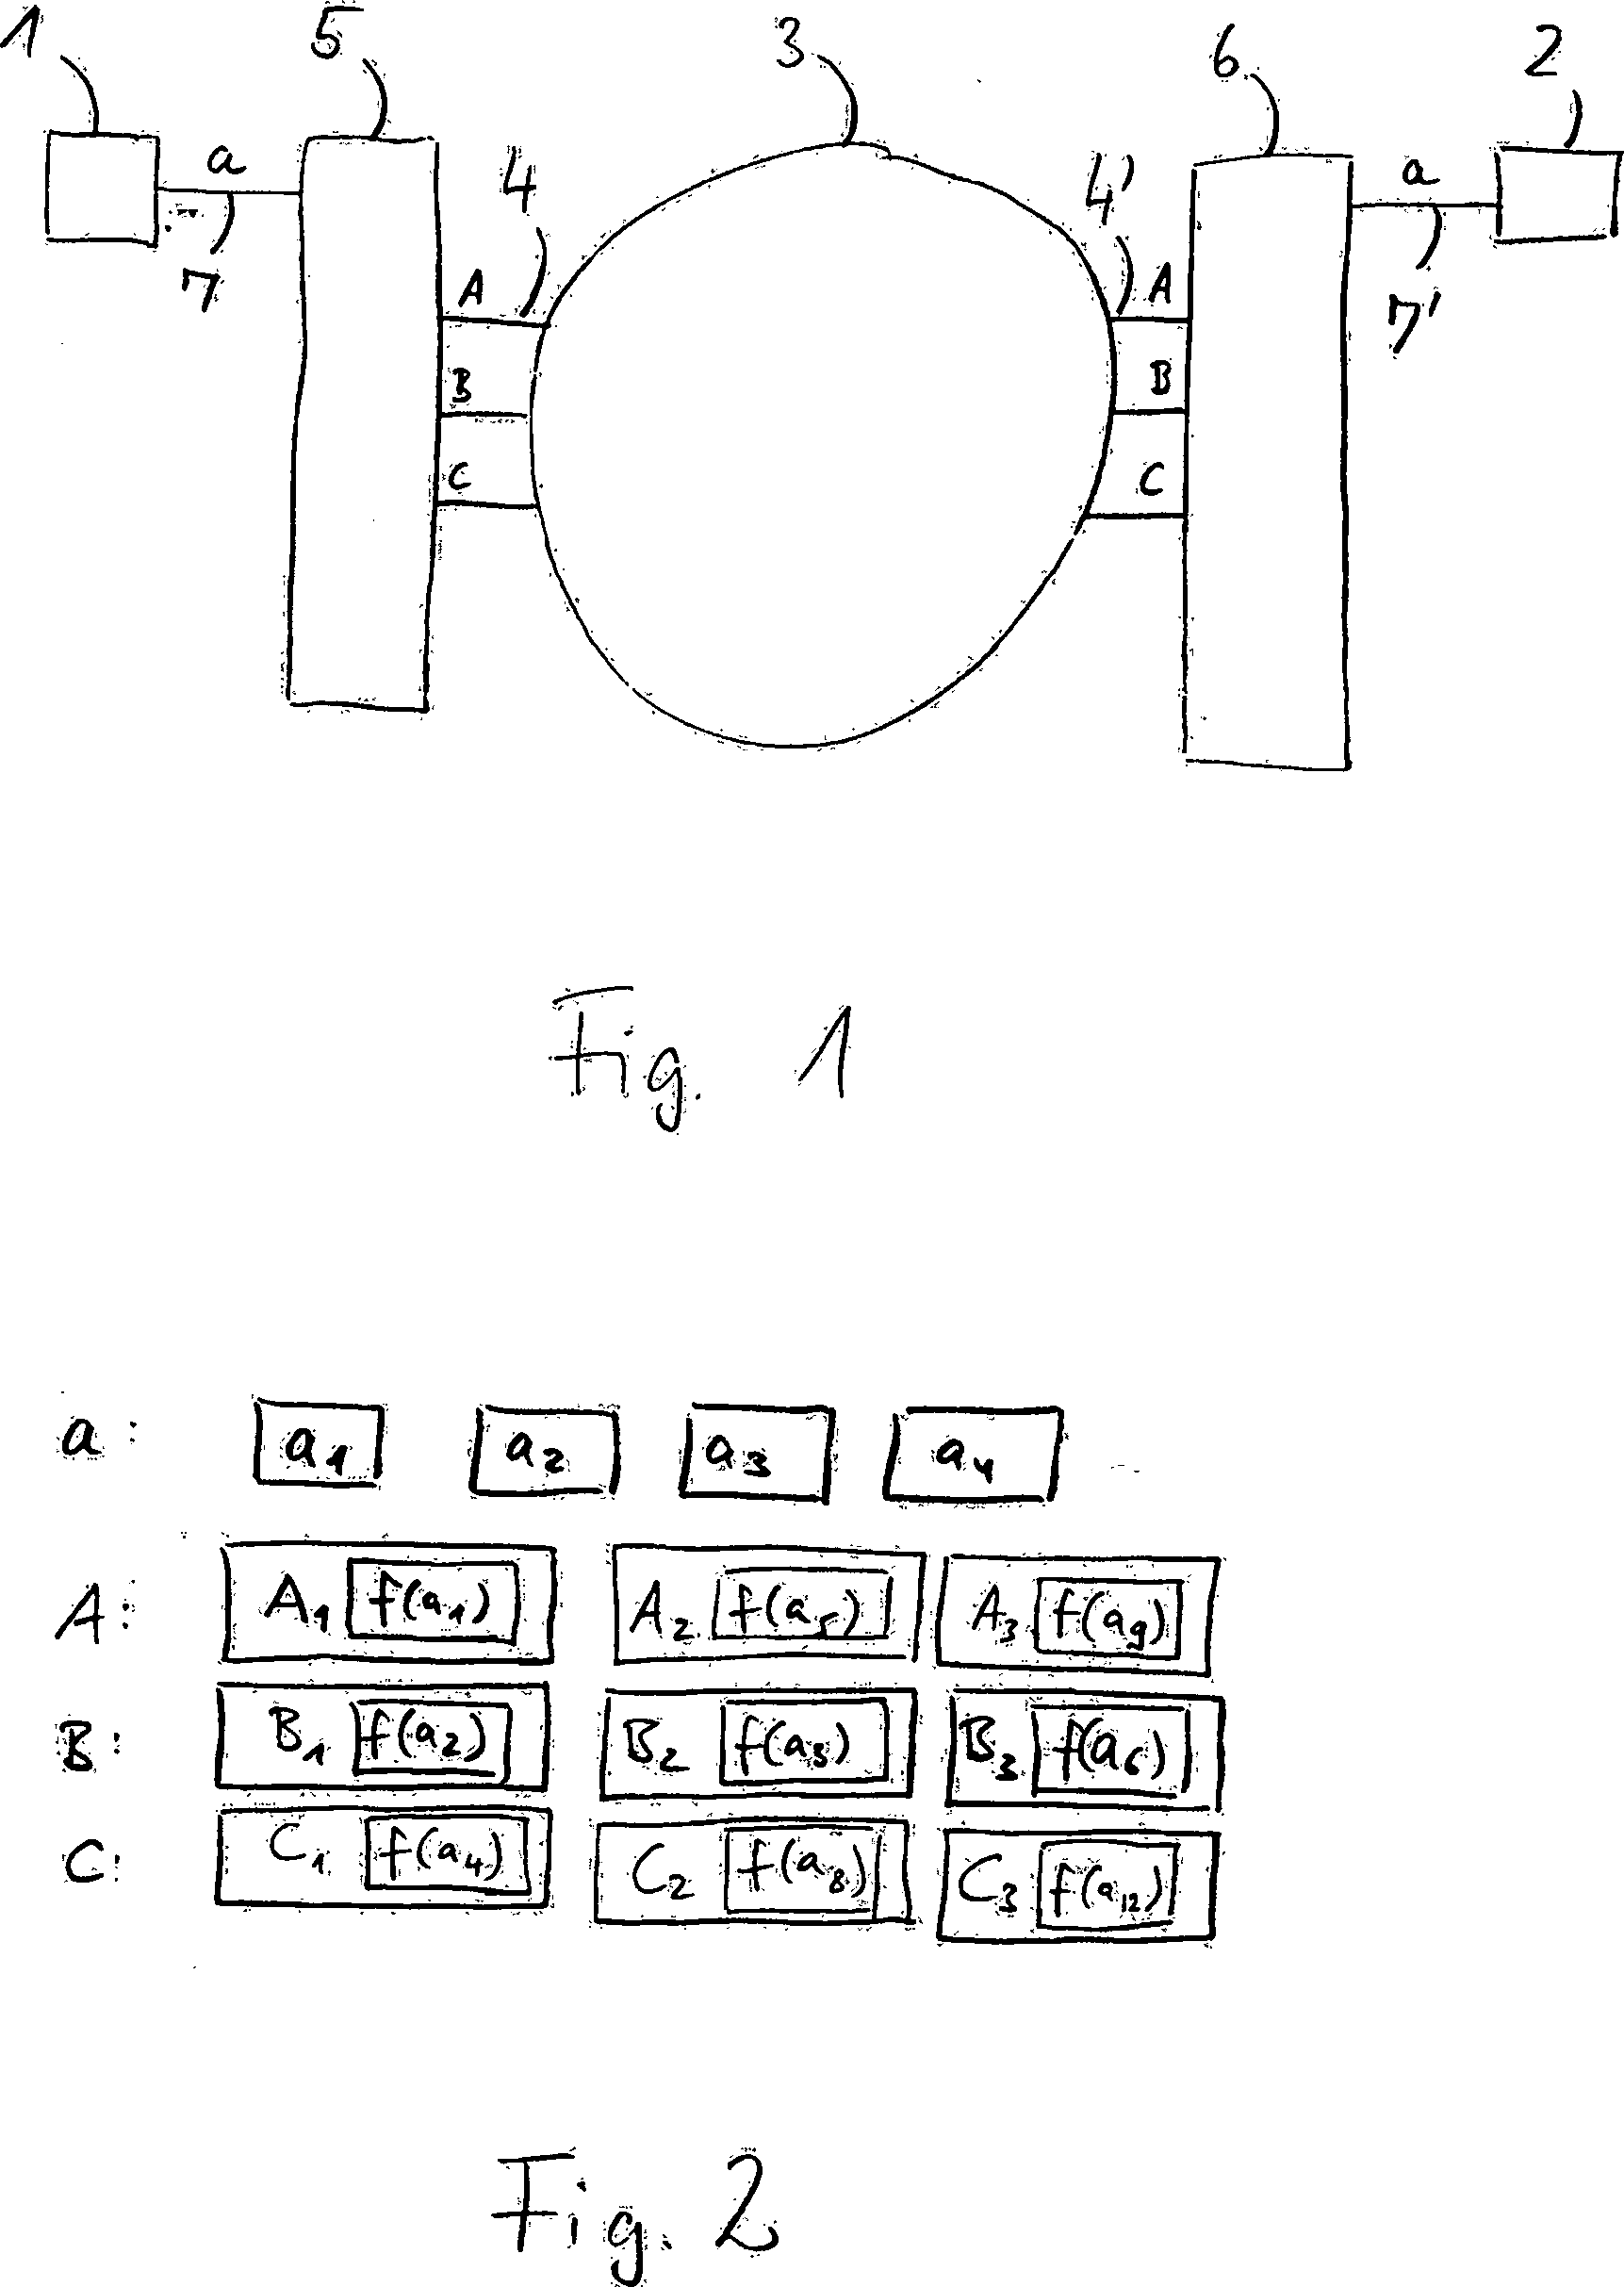 1 5 3 6 2
a 4 4' a
7 A A 7'
B B
C C
Fig. 1
a: a1 a2 a3 a4
A: A1 f(a1) A2 f(a5) A3 f(a9)
B: B1 f(a2) B2 f(a3) B3 f(a6)
C: C1 f(a4) C2 f(a8) C3 f(a12)
Fig. 2